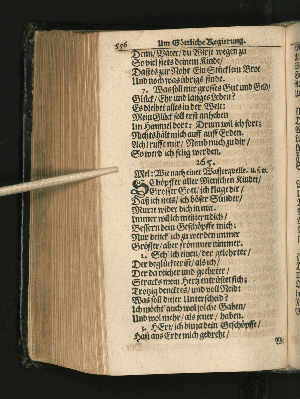 556 Um Göttliche Regierung.
Denn/ Vater/ du Wirst wegen zu
So viel stets deinem Kinde/
Daß es zur Noht Ein Stücklein Brot
Und noch was übrigs finde.
7. Was soll mir grosses Gut und Geld/
Glück/ Ehr und langes Leben?
Es bleibet alles in der Welt:
Mein Glück soll erst anheben
Im Himmel dort: Drum wil ich fort;
Nichts hält mich auff auff Erden.
Ach! ruffe mir/ Nimb mich zu dir/
So werd ich selig werden.
265.
Mel: Wie nach einer Wasserquelle. u. s. w.
Schöpffer aller Menschen Kinder/
Grosser Gott/ ich klage dir/
Daß ich stets/ ich böser Sünder/
Murre wider dich in mir.
Immer wil ich meistern dich/
Bessern dein Geschöpffe mich:
Nur denck ich zu werden immer
Grösser/ aber frömmer nimmer.
2. Seh ich einen/ der gelehrter/
Der beglückter ist/ als ich/
Der da reicher und geehrter/
Stracks mein Hertz entrüstet sich:
Trotzig denckts/ und voll Neid:
Was soll dieser Unterscheid?
Ich möcht auch wol solche Gaben/
Und wol mehr/ als jener/ haben.
3. HErr/ ich bin ja dein Geschöpffe/
Hast aus Erde mich gedreht/